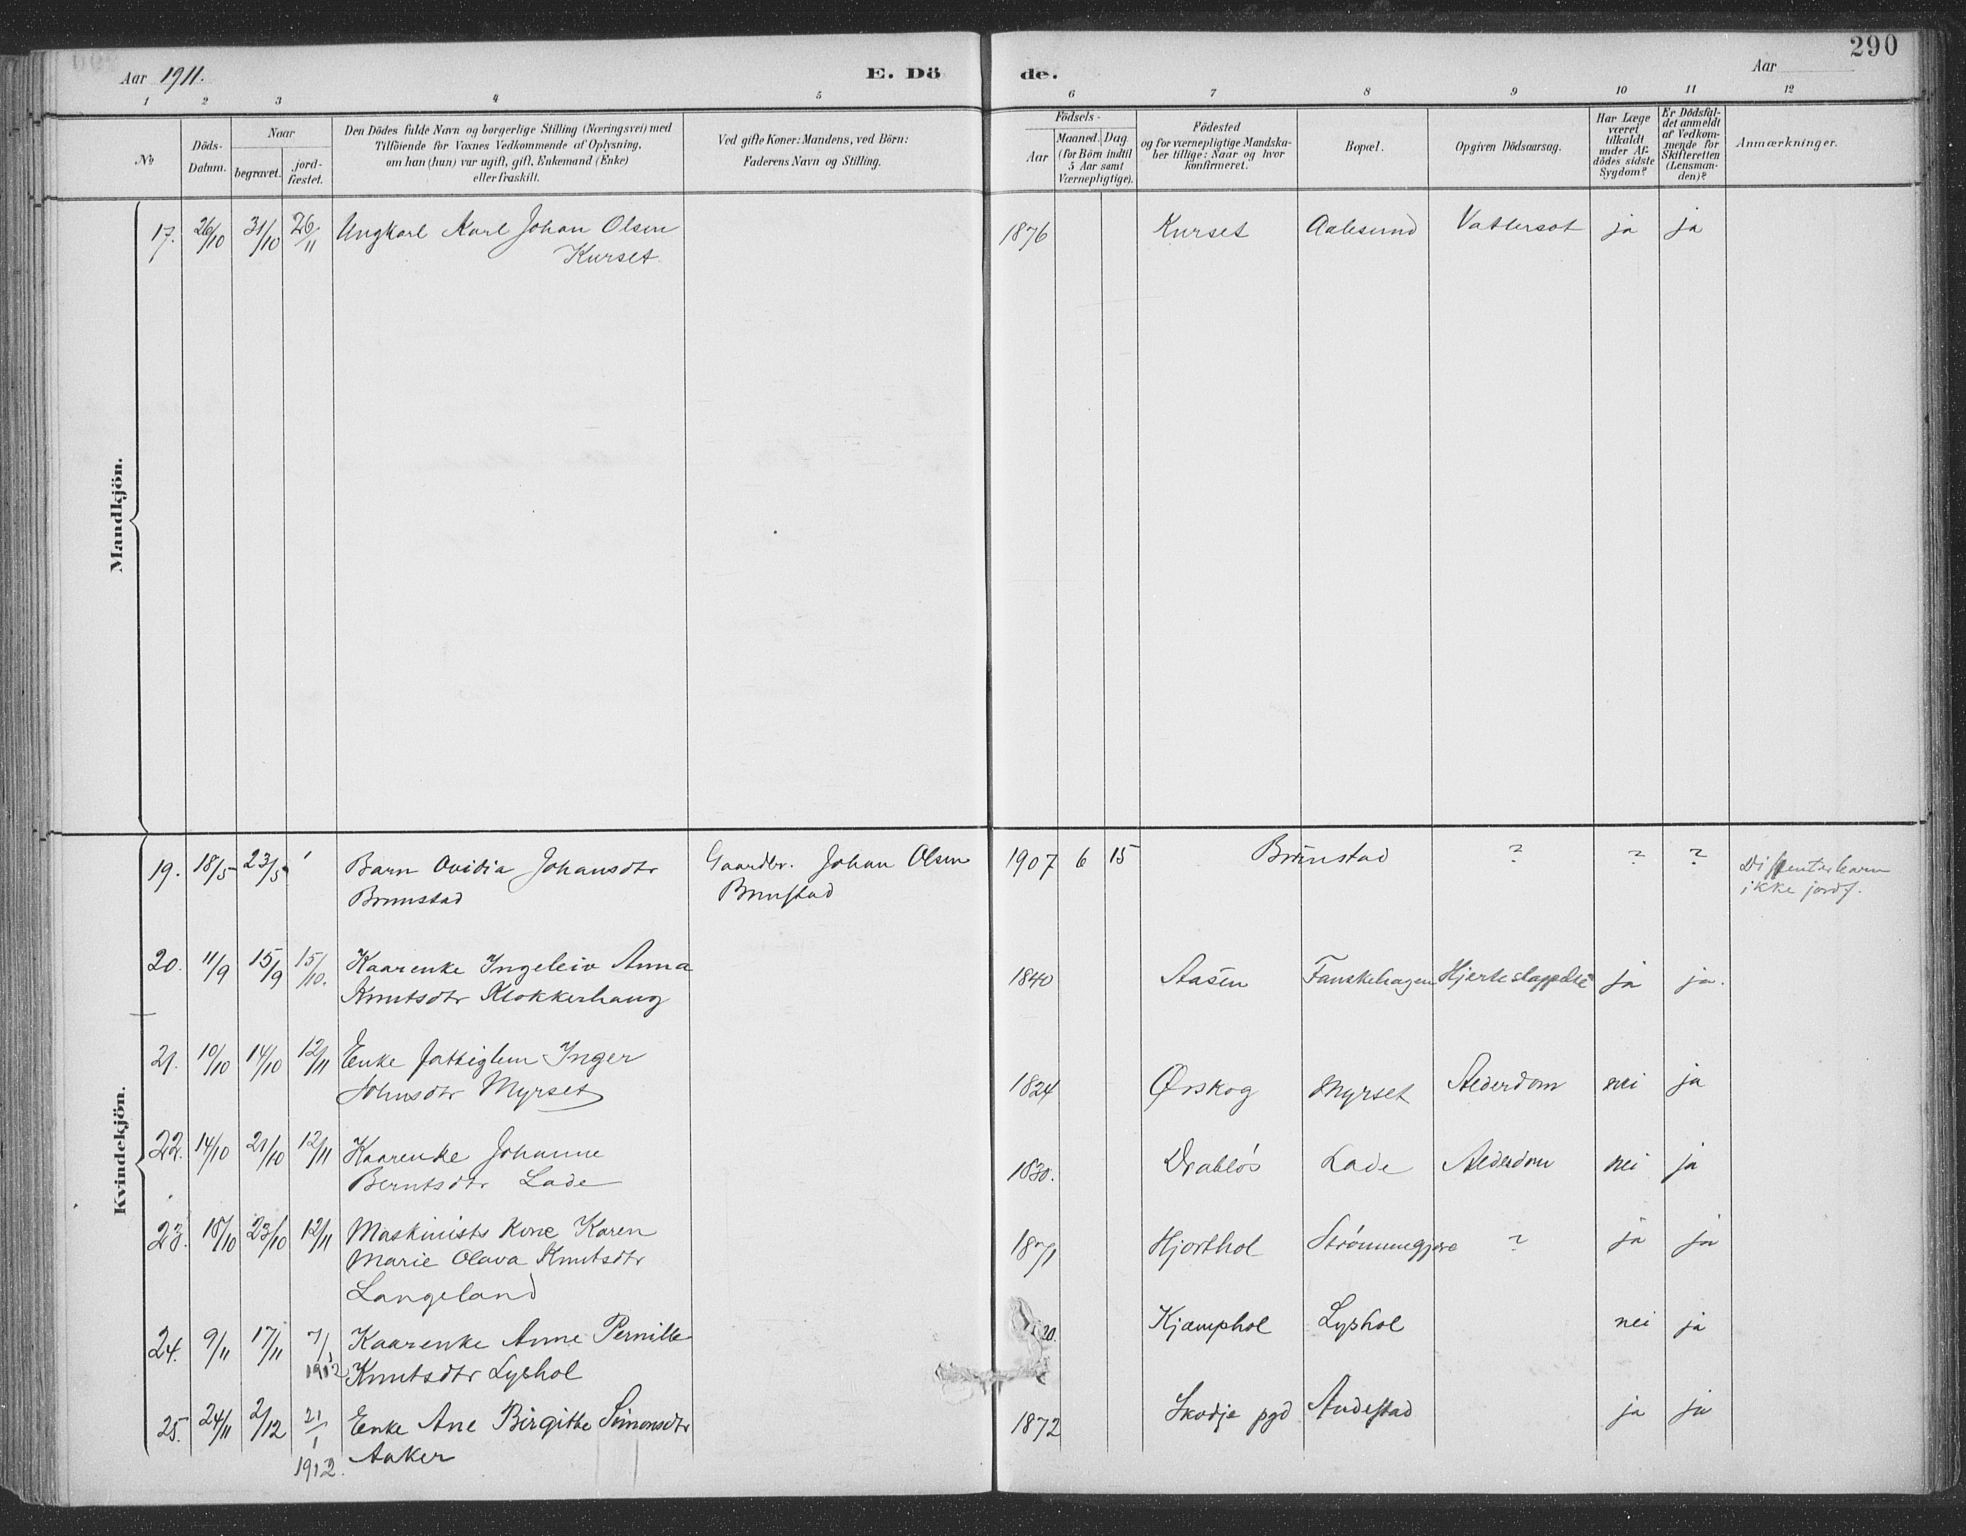 290
Aar 1911.
E. Dö
de.
Aar
1 2 3 4 5 6 7 8 9 10 11 12
No
Döds-
Datum.
Naar
begravet.
jord-
fæstet.
Den Dödes fulde Navn og borgerlige Stilling (Næringsvei) med
Tilföiende for Voxnes Vedkommende af Oplysning,
om han (hun) var ugift, gift, Enkemand (Enke)
eller fraskilt.
Ved gifte Koner: Mandens, ved Börn:
Faderens Navn og Stilling.
Födsels-
Aar
Maaned.
Dag
(for Börn indtil
5 Aar samt
Værnepligtige).
Födested
og for værnepligtige Mandska-
ber tillige: Naar og hvor
konfirmeret.
Bopæl.
Opgiven Dödsaarsag.
Har Læge
været
tilkaldt
under Af-
dödes sidste
Sygdom?
Er Dödsfal-
det anmeldt
af Vedkom-
mende for
Skifteretten
(Lensman-
den)?
Anmærkninger.
Mandkjön.
17. 26/10 31/10 26/11 Ungkarl Karl Johan Olsen 1876 Kurset Aalesund Vattersot ja ja
Kurset
Kvindekjön.
19. 18/5 23/5 Barn Ovidia Johansdtr Gaardbr. Johan Olsen 1907 6 15 Brunstad ? ? ? Dissenterbarn
Brunstad Brunstad ikke jordf.
20. 11/9 15/9 15/10. Kaarenke Ingeleiv Anna 1840 Aasen Fauskehagen ja ja.
Knutsdtr Klokkerhaug
21. 10/10 14/10 12/11 Enke fattiglem Inger
Johnsdtr Myrset 1824 Ørskog Myrset Alderdom nei ja
22. 14/10 21/10 12/11 Kaarenke Johanne 1830. Drabløs Lade Alderdom nei ja
Berntsdtr Lade
23. 18/10 23/10 12/11 Maskinists Kone Karen 1871 Hjorthol ? ja ja
Marie Olava Knutsdtr
Langeland
24. 9/11 17/11 7/1 1912 Kaarenke Anne Pernille 20. Kjæmphol Lyshol nei ja
Knutsdtr Lyshol
25. 24/11 2/12 21/1 1912. Enke Ane Birgitte Simonsdtr 1872 Skodje pgd Andestad ja ja
Aaker